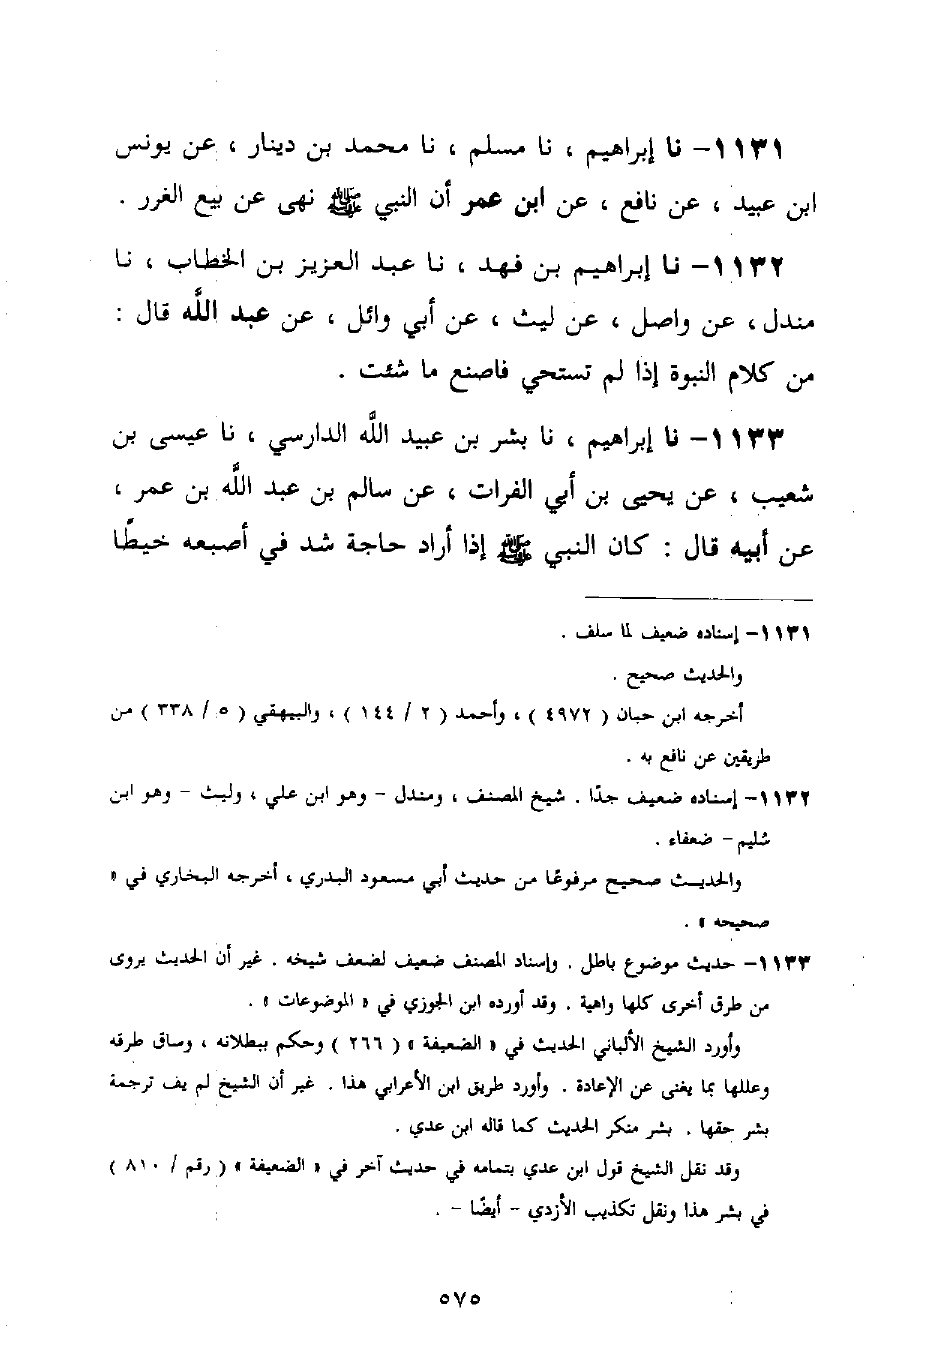 ١١٣١- نا إبراهيم ، نا مسلم ، نا محمد بن دينار ، عن يونس
ابن عبيد ، عن نافع ، عن ابن عمر أن النبي ﷺ نهى عن بيع الغرر .
١١٣٢- نا إبراهيم بن فهد ، نا عبد العزيز بن الخطاب ، نا
مندل ، عن واصل ، عن ليث ، عن أبي وائل ، عن عبد اللَّه قال :
من كلام النبوة إذا لم تستحي فاصنع ما شئت .
١١٣٣- نا إبراهيم ، نا بشر بن عبيد اللَّه الدارسي ، نا عيسى بن
شعيب ، عن يحيى بن أبي الفرات ، عن سالم بن عبد اللَّه بن عمر ،
عن أبيه قال : كان النبي ﷺ إذا أراد حاجة شد في أصبعه خيطًا
١١٣١- إسناده ضعيف لما سلف .
والحديث صحيح .
أخرجه ابن حبان ( ٤٩٧٢ ) ، وأحمد ( ٢ / ١٤٤ ) ، والبيهقي ( ٥ / ٣٣٨ ) من
طريقين عن نافع به .
١١٣٢- إسناده ضعيف جدًا . شيخ المصنف ، ومندل - وهو ابن علي ، وليث - وهو ابن
سُليم - ضعفاء .
والحديث صحيح مرفوعًا من حديث أبي مسعود البدري ، أخرجه البخاري في «
صحيحه » .
١١٣٣- حديث موضوع باطل . وإسناد المصنف ضعيف لضعف شيخه . غير أن الحديث يروى
من طرق أخرى كلها واهية . وقد أورده ابن الجوزي في « الموضوعات » .
وأورد الشيخ الألباني الحديث في « الضعيفة » ( ٢٦٦ ) وحكم ببطلانه ، وساق طرقه
وعللها بما يغنى عن الإعادة . وأورد طريق ابن الأعرابي هذا . غير أن الشيخ لم يف ترجمة
بشر حقها . بشر منكر الحديث كما قاله ابن عدي .
وقد نقل الشيخ قول ابن عدي بتمامه في حديث آخر في « الضعيفة » ( رقم / ٨١٠ )
في بشر هذا ونقل تكذيب الأزدي - أيضًا - .
٥٧٥